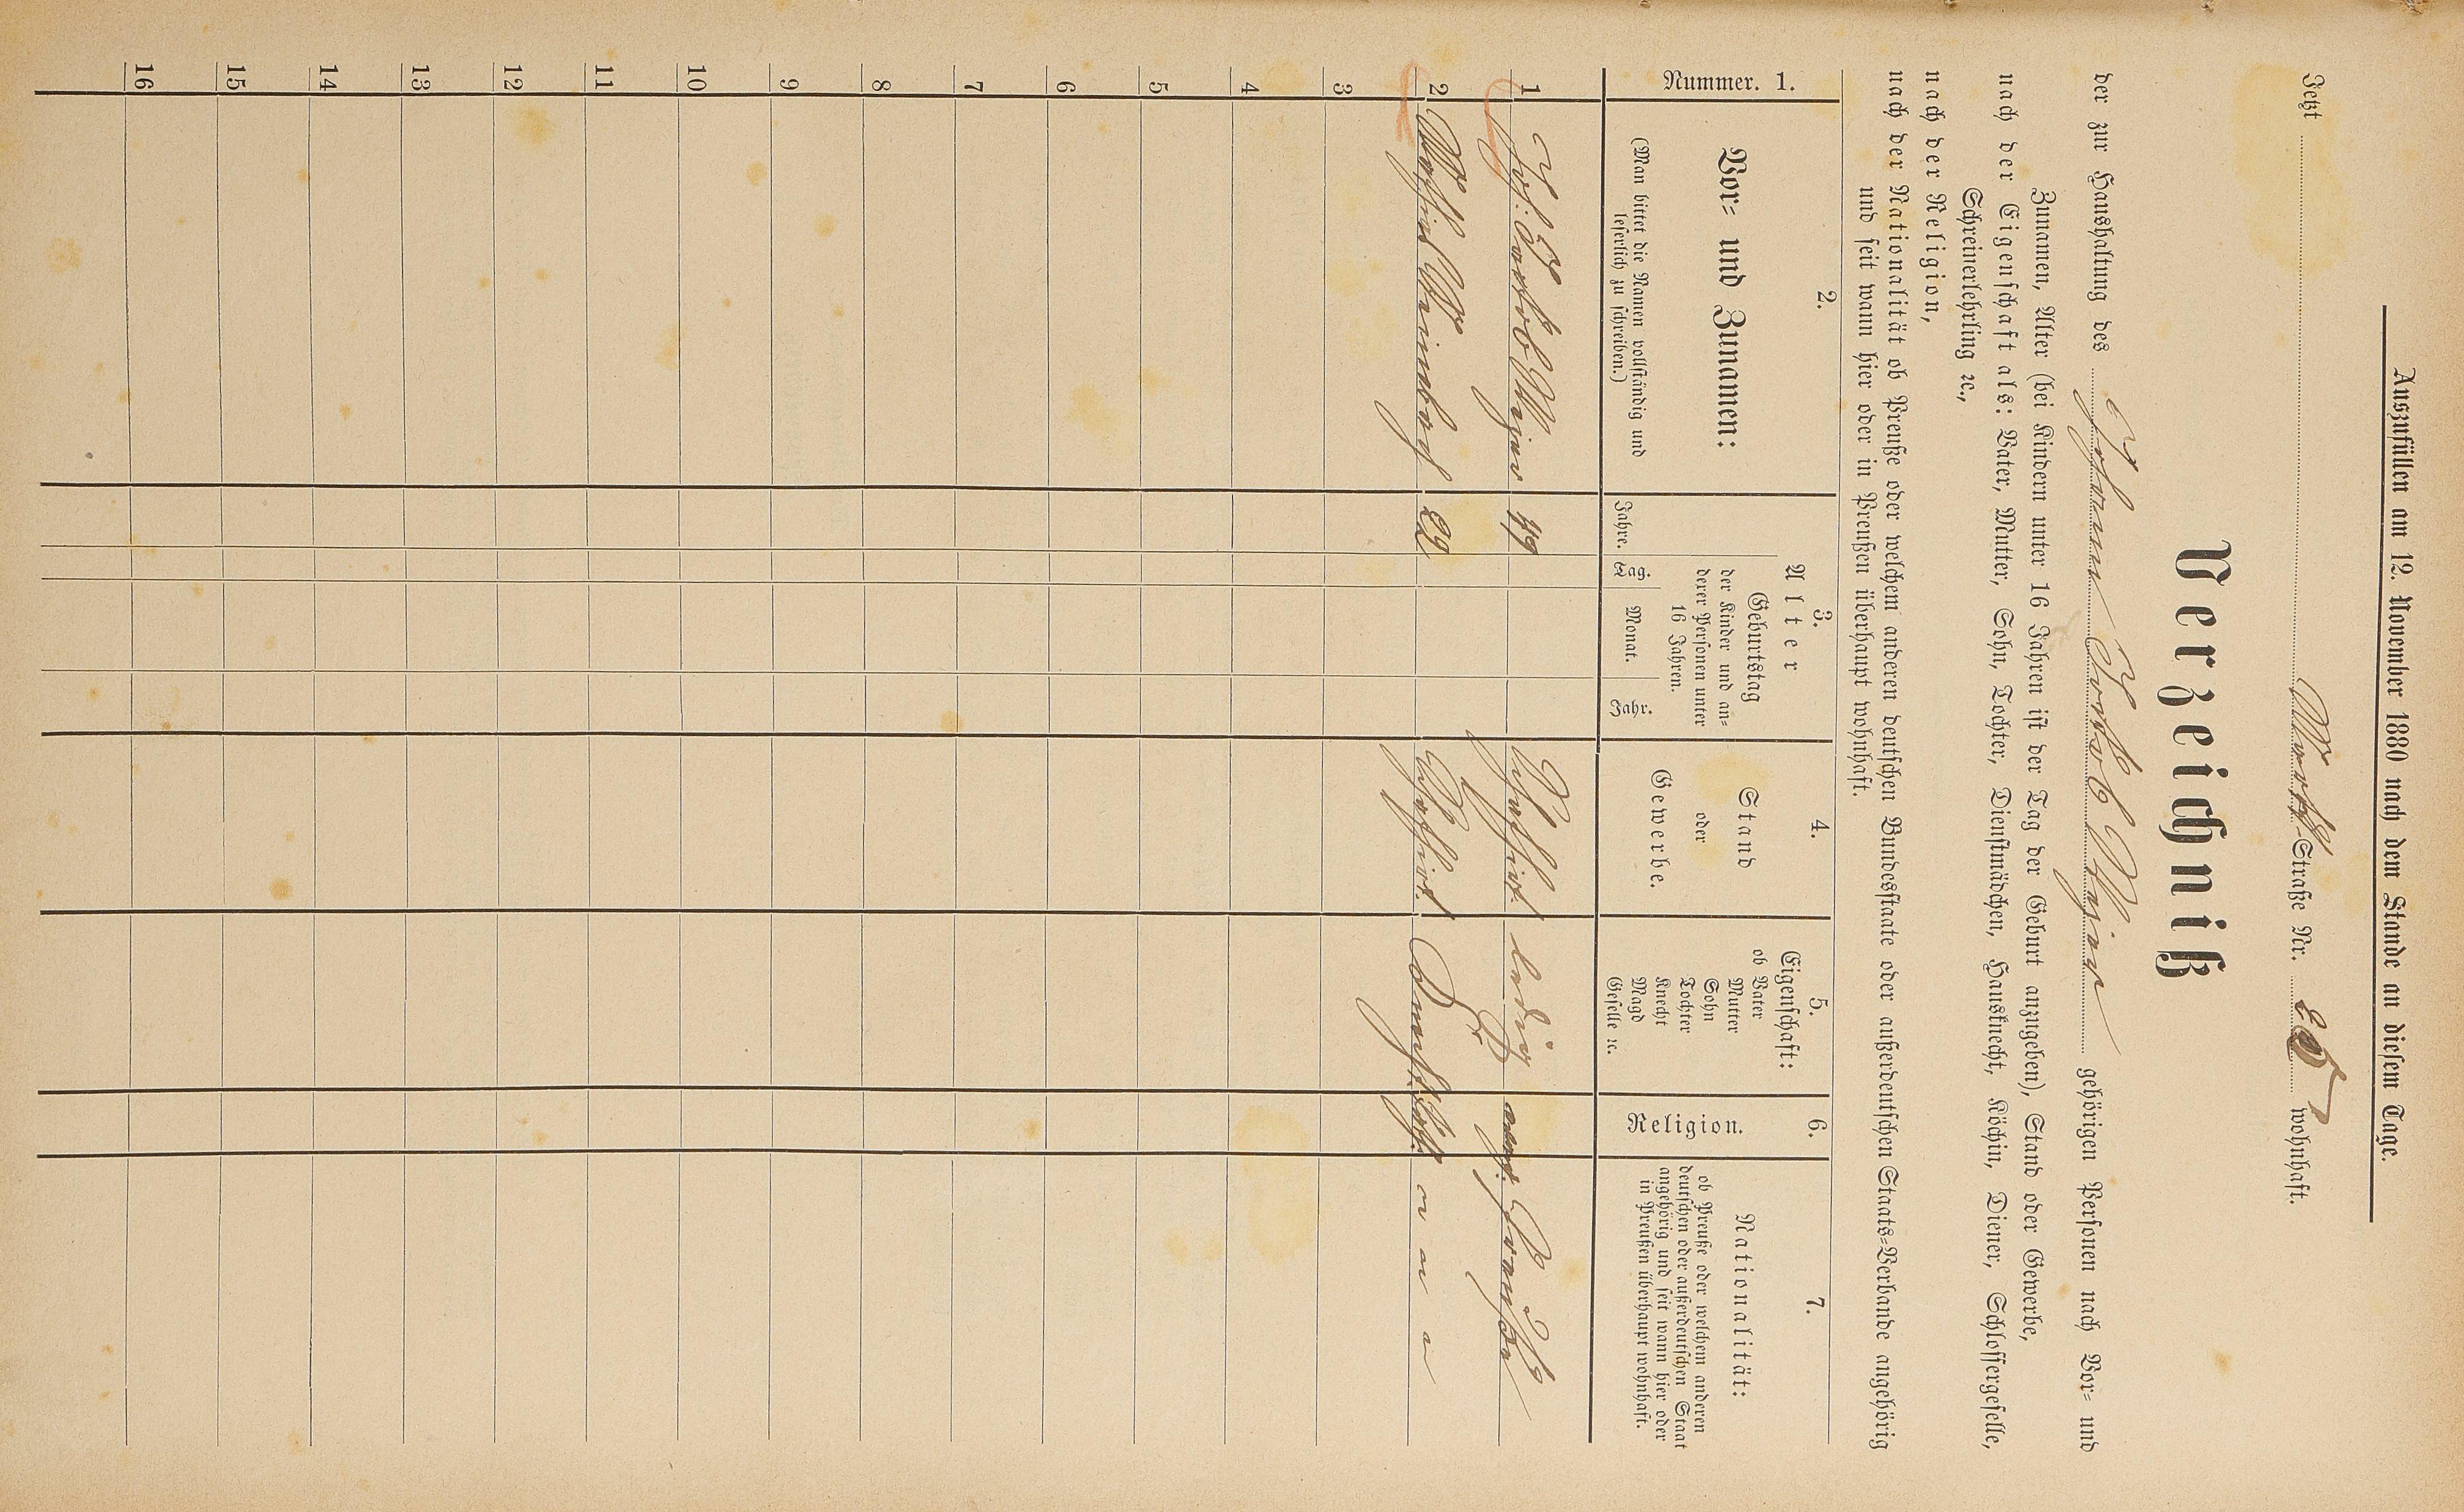 Auszufüllen am 12. November 1880 nach dem Stande an diesem Tage.
Jetzt Markt-Straße Nr. wohnhaft.
Verzeichniß
der zur Haushaltung des Johann Jakob Meier gehörigen Personen nach Vor- und
Zunamen, Alter (bei Kindern unter 16 Jahren ist der Tag der Geburt anzugeben), Stand oder Gewerbe,
nach der Eigenschaft als: Vater, Mutter, Sohn, Tochter, Dienstmädchen, Hausknecht, Köchin, Diener, Schlossergeselle,
Schreinerlehrling ꝛc.,
nach der Religion,
nach der Nationalität ob Preuße oder welchem anderen deutschen Bundesstaate oder außerdeutschen Staats-Verbande angehörig
und seit wann hier oder in Preußen überhaupt wohnhaft.
Nummer. 1.
2.
Vor- und Zunamen:
(Man bittet die Namen vollständig und
leserlich zu schreiben.)
3.
Alter
Jahre.
Geburtstag
der Kinder und an-
derer Personen unter
16 Jahren.
Tag. Monat. Jahr.
4.
Stand
oder
Gewerbe.
5.
Eigenschaft:
ob Vater
Mutter
Sohn
Tochter
Knecht
Magd
Geselle ꝛc.
6.
Religion.
7.
Nationalität:
ob Preuße oder welchem anderen
deutschen oder außerdeutschen Staat
angehörig und seit wann hier oder
in Preußen überhaupt wohnhaft.
1 Joh: Jakob Meier ledig Preuße
2 29 kath.
3
4
5
6
7
8
9
10
11
12
13
14
15
16